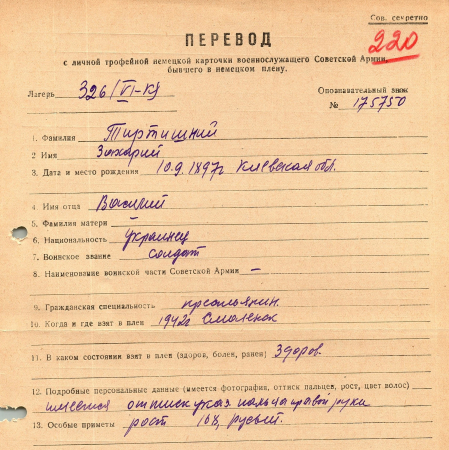 Сов. секретно
220
ПЕРЕВОД
с личной трофейной немецкой карточки военнослужащего Советской Армии,
бывшего в немецком плену.
Лагерь 326/VI-К
Опознавательный знак
№ 175750
1. Фамилия Тиртишний
2 Имя Захарий
3. Дата и место рождения 10.9.1897г Киевская обл.
4. Имя отца Василий
5. Фамилия матери –
6. Национальность украинец
7. Воинское звание солдат
8. Наименование воинской части Советской Армии –
9. Гражданская специальность крестьянин.
10. Когда и где взят в плен 1942г Смоленск
11. В каком состоянии взят в плен (здоров, болен, ранен) Здоров.
12. Подробные персональные данные (имеется фотография, оттиск пальцев, рост, цвет волос)
имеется оттиск указ пальца правой руки
13. Особые приметы рост 168, русый.